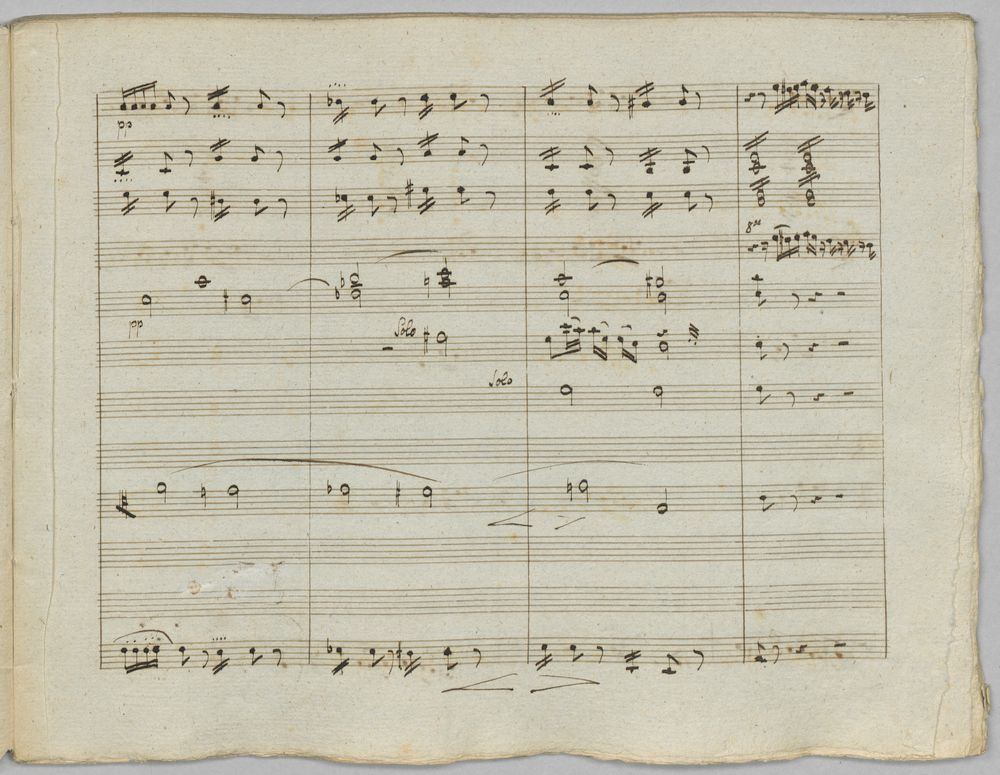 pp
8va
pp
Solo
Solo